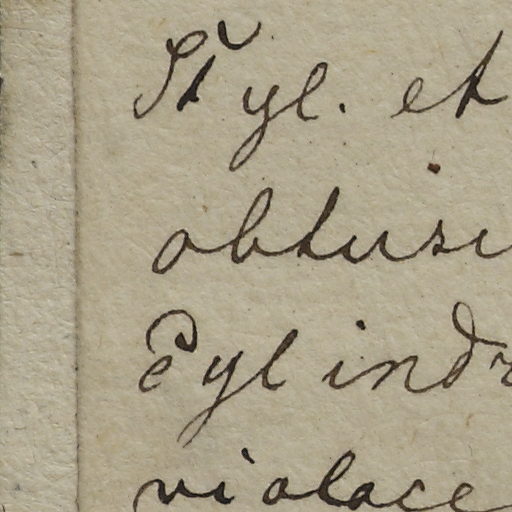 Styl. et
obtusi
Cylindr
violace